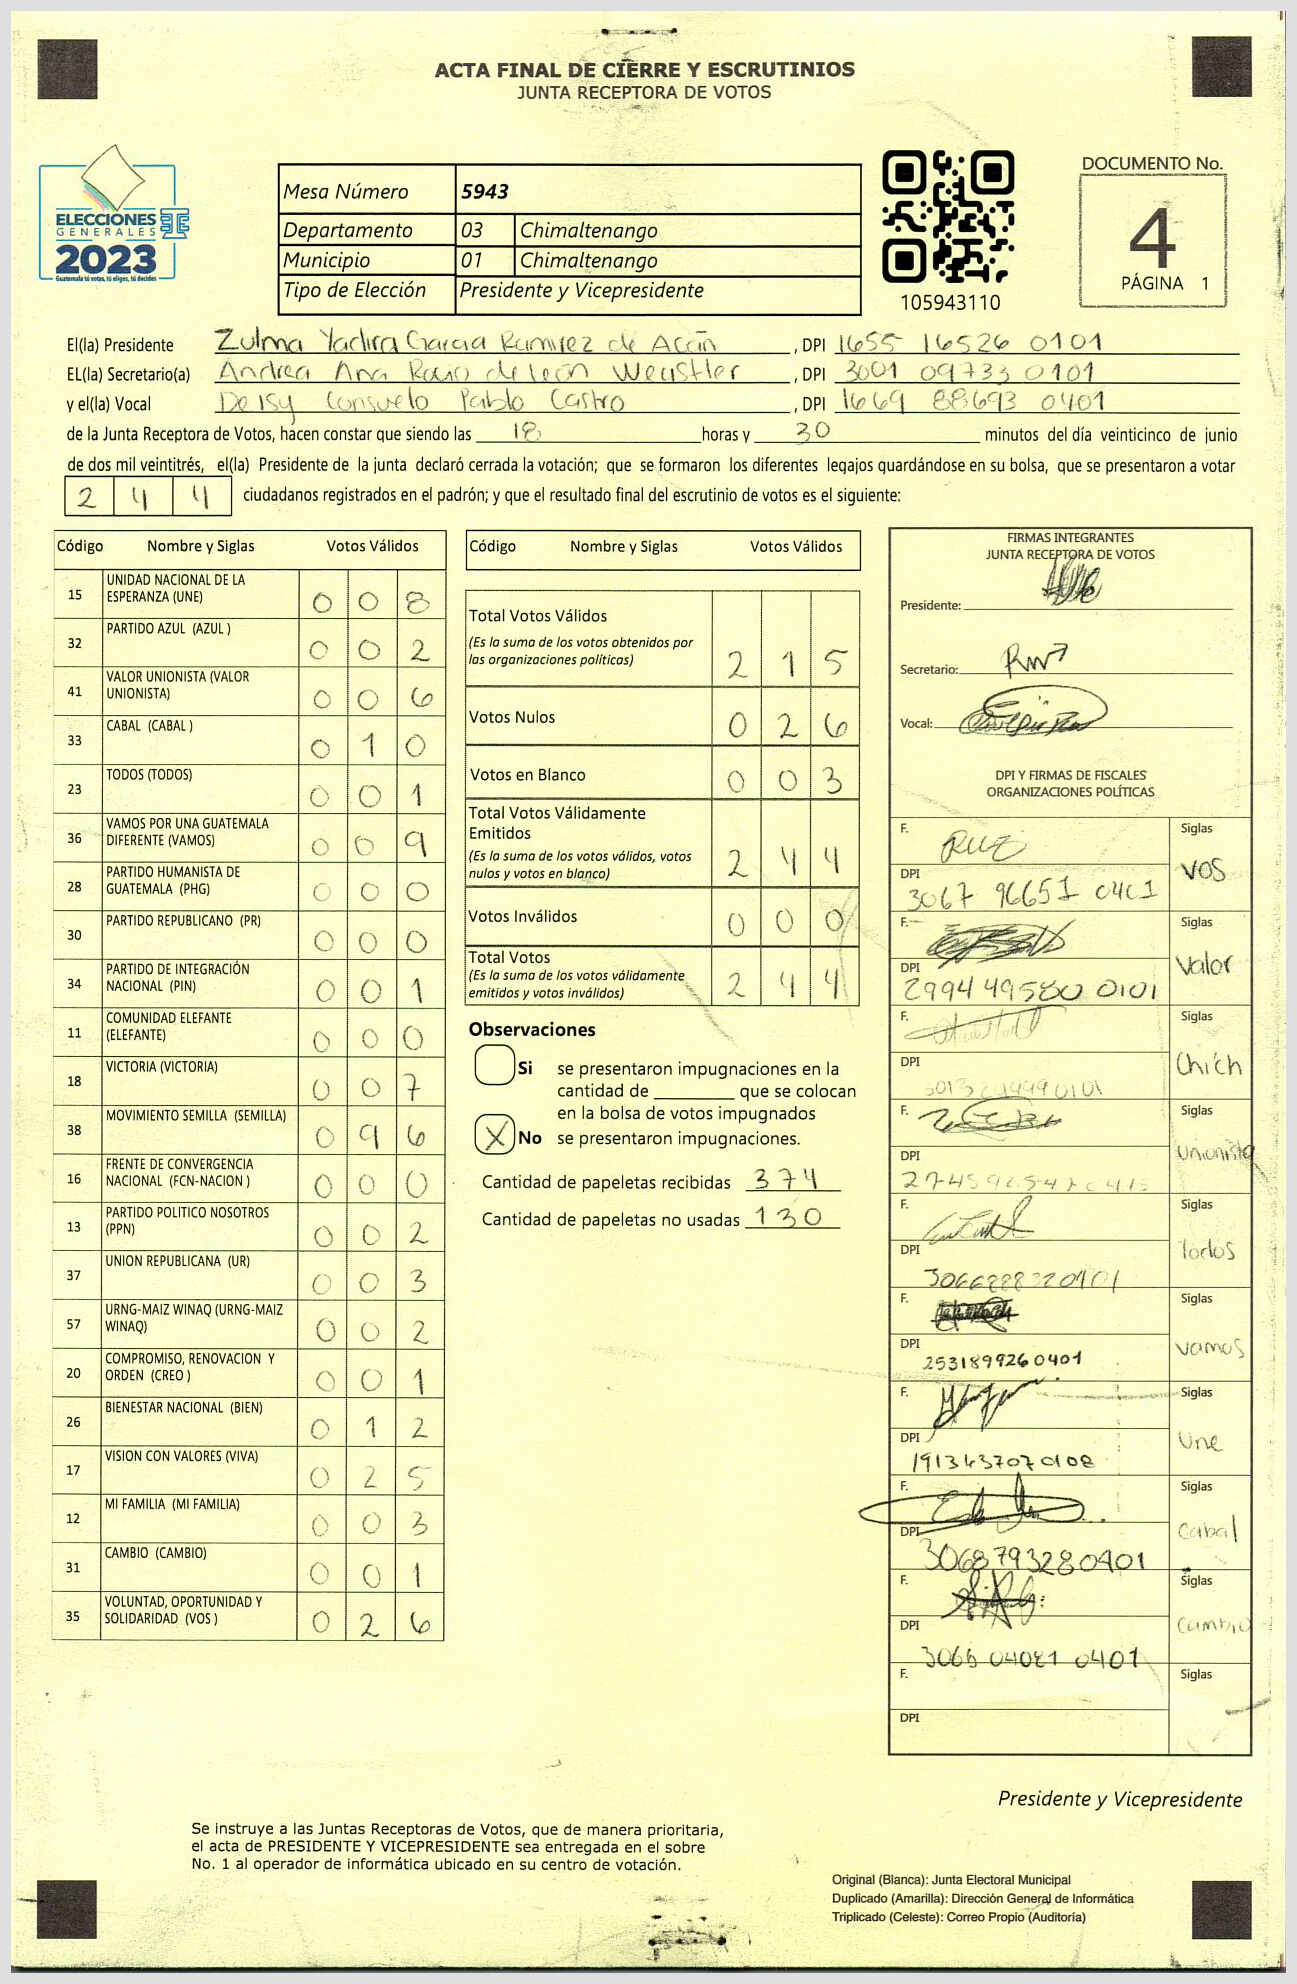 ACTA FINAL DE CIERRE Y ESCRUTINIOS
JUNTA RECEPTORA DE VOTOS
ELECCIONES
GENERALES
2023
Guatemala tú votas, tú eliges, tú decides
Mesa Número 5943
Departamento 03 Chimaltenango
Municipio 01 Chimaltenango
Tipo de Elección Presidente y Vicepresidente
105943110
DOCUMENTO No.
4
PÁGINA 1
El(la) Presidente Zulma Yadira Garcia Ramirez de Acán , DPI 1655 16526 0101
EL(la) Secretario(a) Andrea Ana de León , DPI 3001 09733 0101
y el(la) Vocal Deisy Consuelo Pablo Castro , DPI 1669 88693 0401
de la Junta Receptora de Votos, hacen constar que siendo las 18 horas y 30 minutos del día veinticinco de junio
de dos mil veintitrés, el(la) Presidente de la junta declaró cerrada la votación; que se formaron los diferentes legajos guardándose en su bolsa, que se presentaron a votar
2 4 4 ciudadanos registrados en el padrón; y que el resultado final del escrutinio de votos es el siguiente:
Código Nombre y Siglas Votos Válidos
15 UNIDAD NACIONAL DE LA ESPERANZA (UNE) 0 0 8
32 PARTIDO AZUL (AZUL ) 0 0 2
41 VALOR UNIONISTA (VALOR UNIONISTA) 0 0 6
33 CABAL (CABAL ) 0 1 0
23 TODOS (TODOS) 0 0 1
36 VAMOS POR UNA GUATEMALA DIFERENTE (VAMOS) 0 0 9
28 PARTIDO HUMANISTA DE GUATEMALA (PHG) 0 0 0
30 PARTIDO REPUBLICANO (PR) 0 0 0
34 PARTIDO DE INTEGRACIÓN NACIONAL (PIN) 0 0 1
11 COMUNIDAD ELEFANTE (ELEFANTE) 0 0 0
18 VICTORIA (VICTORIA) 0 0 7
38 MOVIMIENTO SEMILLA (SEMILLA) 0 9 6
16 FRENTE DE CONVERGENCIA NACIONAL (FCN-NACION ) 0 0 0
13 PARTIDO POLITICO NOSOTROS (PPN) 0 0 2
37 UNION REPUBLICANA (UR) 0 0 3
57 URNG-MAIZ WINAQ (URNG-MAIZ WINAQ) 0 0 2
20 COMPROMISO, RENOVACION Y ORDEN (CREO ) 0 0 1
26 BIENESTAR NACIONAL (BIEN) 0 1 2
17 VISION CON VALORES (VIVA) 0 2 5
12 MI FAMILIA (MI FAMILIA) 0 0 3
31 CAMBIO (CAMBIO) 0 0 1
35 VOLUNTAD, OPORTUNIDAD Y SOLIDARIDAD (VOS ) 0 2 6
Código Nombre y Siglas Votos Válidos
Total Votos Válidos
(Es la suma de los votos obtenidos por
las organizaciones políticas) 2 1 5
Votos Nulos 0 2 6
Votos en Blanco 0 0 3
Total Votos Válidamente
Emitidos
(Es la suma de los votos válidos, votos
nulos y votos en blanco) 2 4 4
Votos Inválidos 0 0 0
Total Votos
(Es la suma de los votos válidamente
emitidos y votos inválidos) 2 4 4
Observaciones
Si se presentaron impugnaciones en la
cantidad de ________ que se colocan
en la bolsa de votos impugnados
X No se presentaron impugnaciones.
Cantidad de papeletas recibidas 374
Cantidad de papeletas no usadas 130
FIRMAS INTEGRANTES
JUNTA RECEPTORA DE VOTOS
Presidente:
Secretario:
Vocal:
DPI Y FIRMAS DE FISCALES
ORGANIZACIONES POLÍTICAS
F. Siglas
DPI 3067 96651 0401 VOS
F. Siglas
DPI 2994 49580 0101 Valor
F. Siglas
DPI Chich
F. Siglas
DPI Unionista
F. Siglas
DPI 3066288320101 Todos
F. Siglas
DPI 2531899260401 vamos
F. Siglas
DPI 1913437070108 Une
F. Siglas
DPI 3068793280401 Cabal
F. Siglas
DPI 3066 04081 0401 Cambio
F. Siglas
DPI
Presidente y Vicepresidente
Se instruye a las Juntas Receptoras de Votos, que de manera prioritaria,
el acta de PRESIDENTE Y VICEPRESIDENTE sea entregada en el sobre
No. 1 al operador de informática ubicado en su centro de votación.
Original (Blanca): Junta Electoral Municipal
Duplicado (Amarilla): Dirección General de Informática
Triplicado (Celeste): Correo Propio (Auditoría)